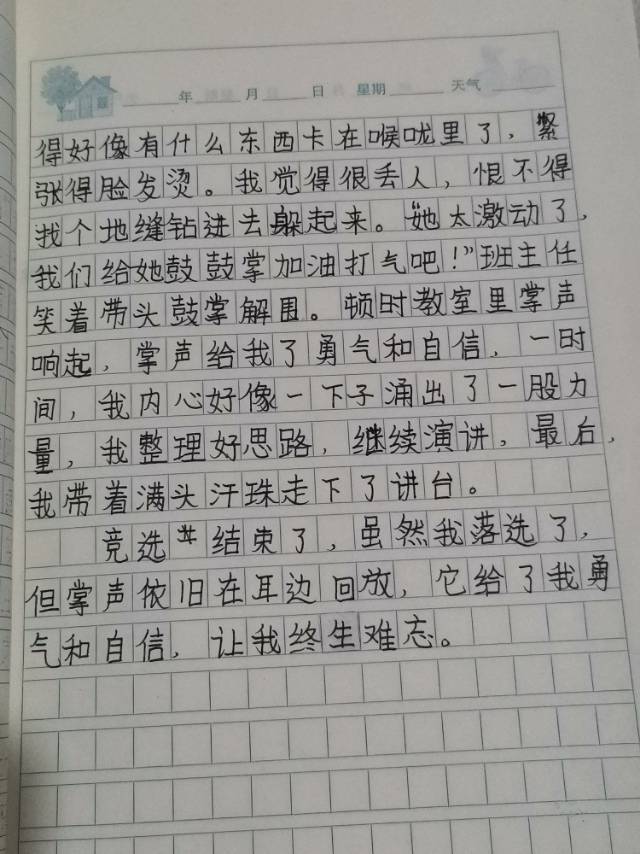 年 月 日 星期 天气
得好像有什么东西卡在喉咙里了，紧
张得脸发烫。我觉得很丢人，恨不得
找个地缝钻进去躲起来。“她太激动了，
我们给她鼓鼓掌加油打气吧！”班主任
笑着带头鼓掌解围。顿时教室里掌声
响起，掌声给我了勇气和自信，一时
间，我内心好像一下子涌出了一股力
量，我整理好思路，继续演讲，最后，
我带着满头汗珠走下了讲台。
竞选结束了，虽然我落选了，
但掌声依旧在耳边回放，它给了我勇
气和自信，让我终生难忘。